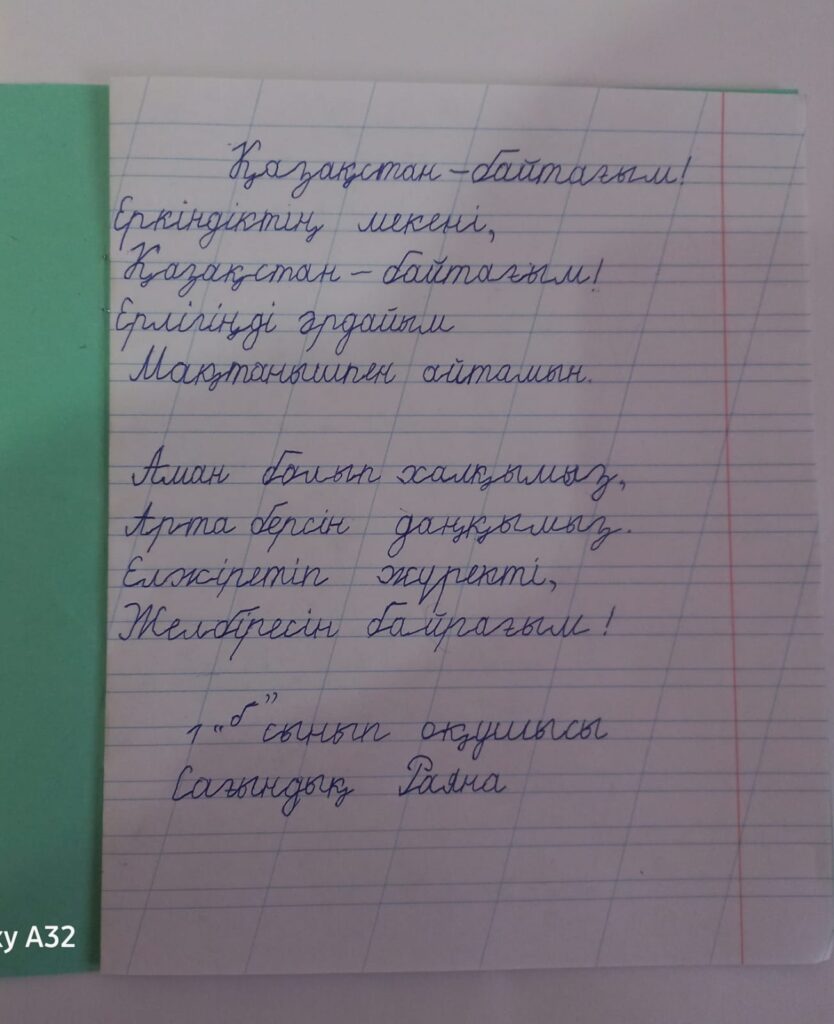 Қазақстан – байтағым!
Еркіндіктің мекені,
Қазақстан – байтағым!
Ерлігіңді әрдайым
Мақтанышпен айтамын.
Аман болып халқымыз,
Арта берсін даңқымыз.
Елжіретіп жүректі,
Желбіресін байрағым!
1 "б" сынып оқушысы
Сағындық Раяна
xy A32